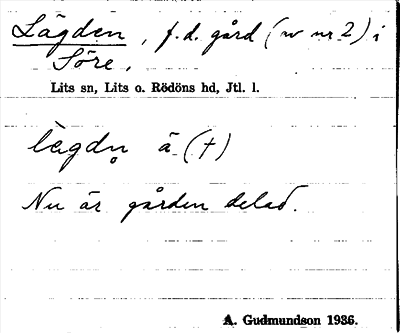 Lägden, f.d. gård (av nr 2) i
Söre,
Lits sn, Lits o. Rödöns hd, Jtl. l.
lègdn̥ ä (†)
Nu är gården delad.
A. Gudmundson 1936.